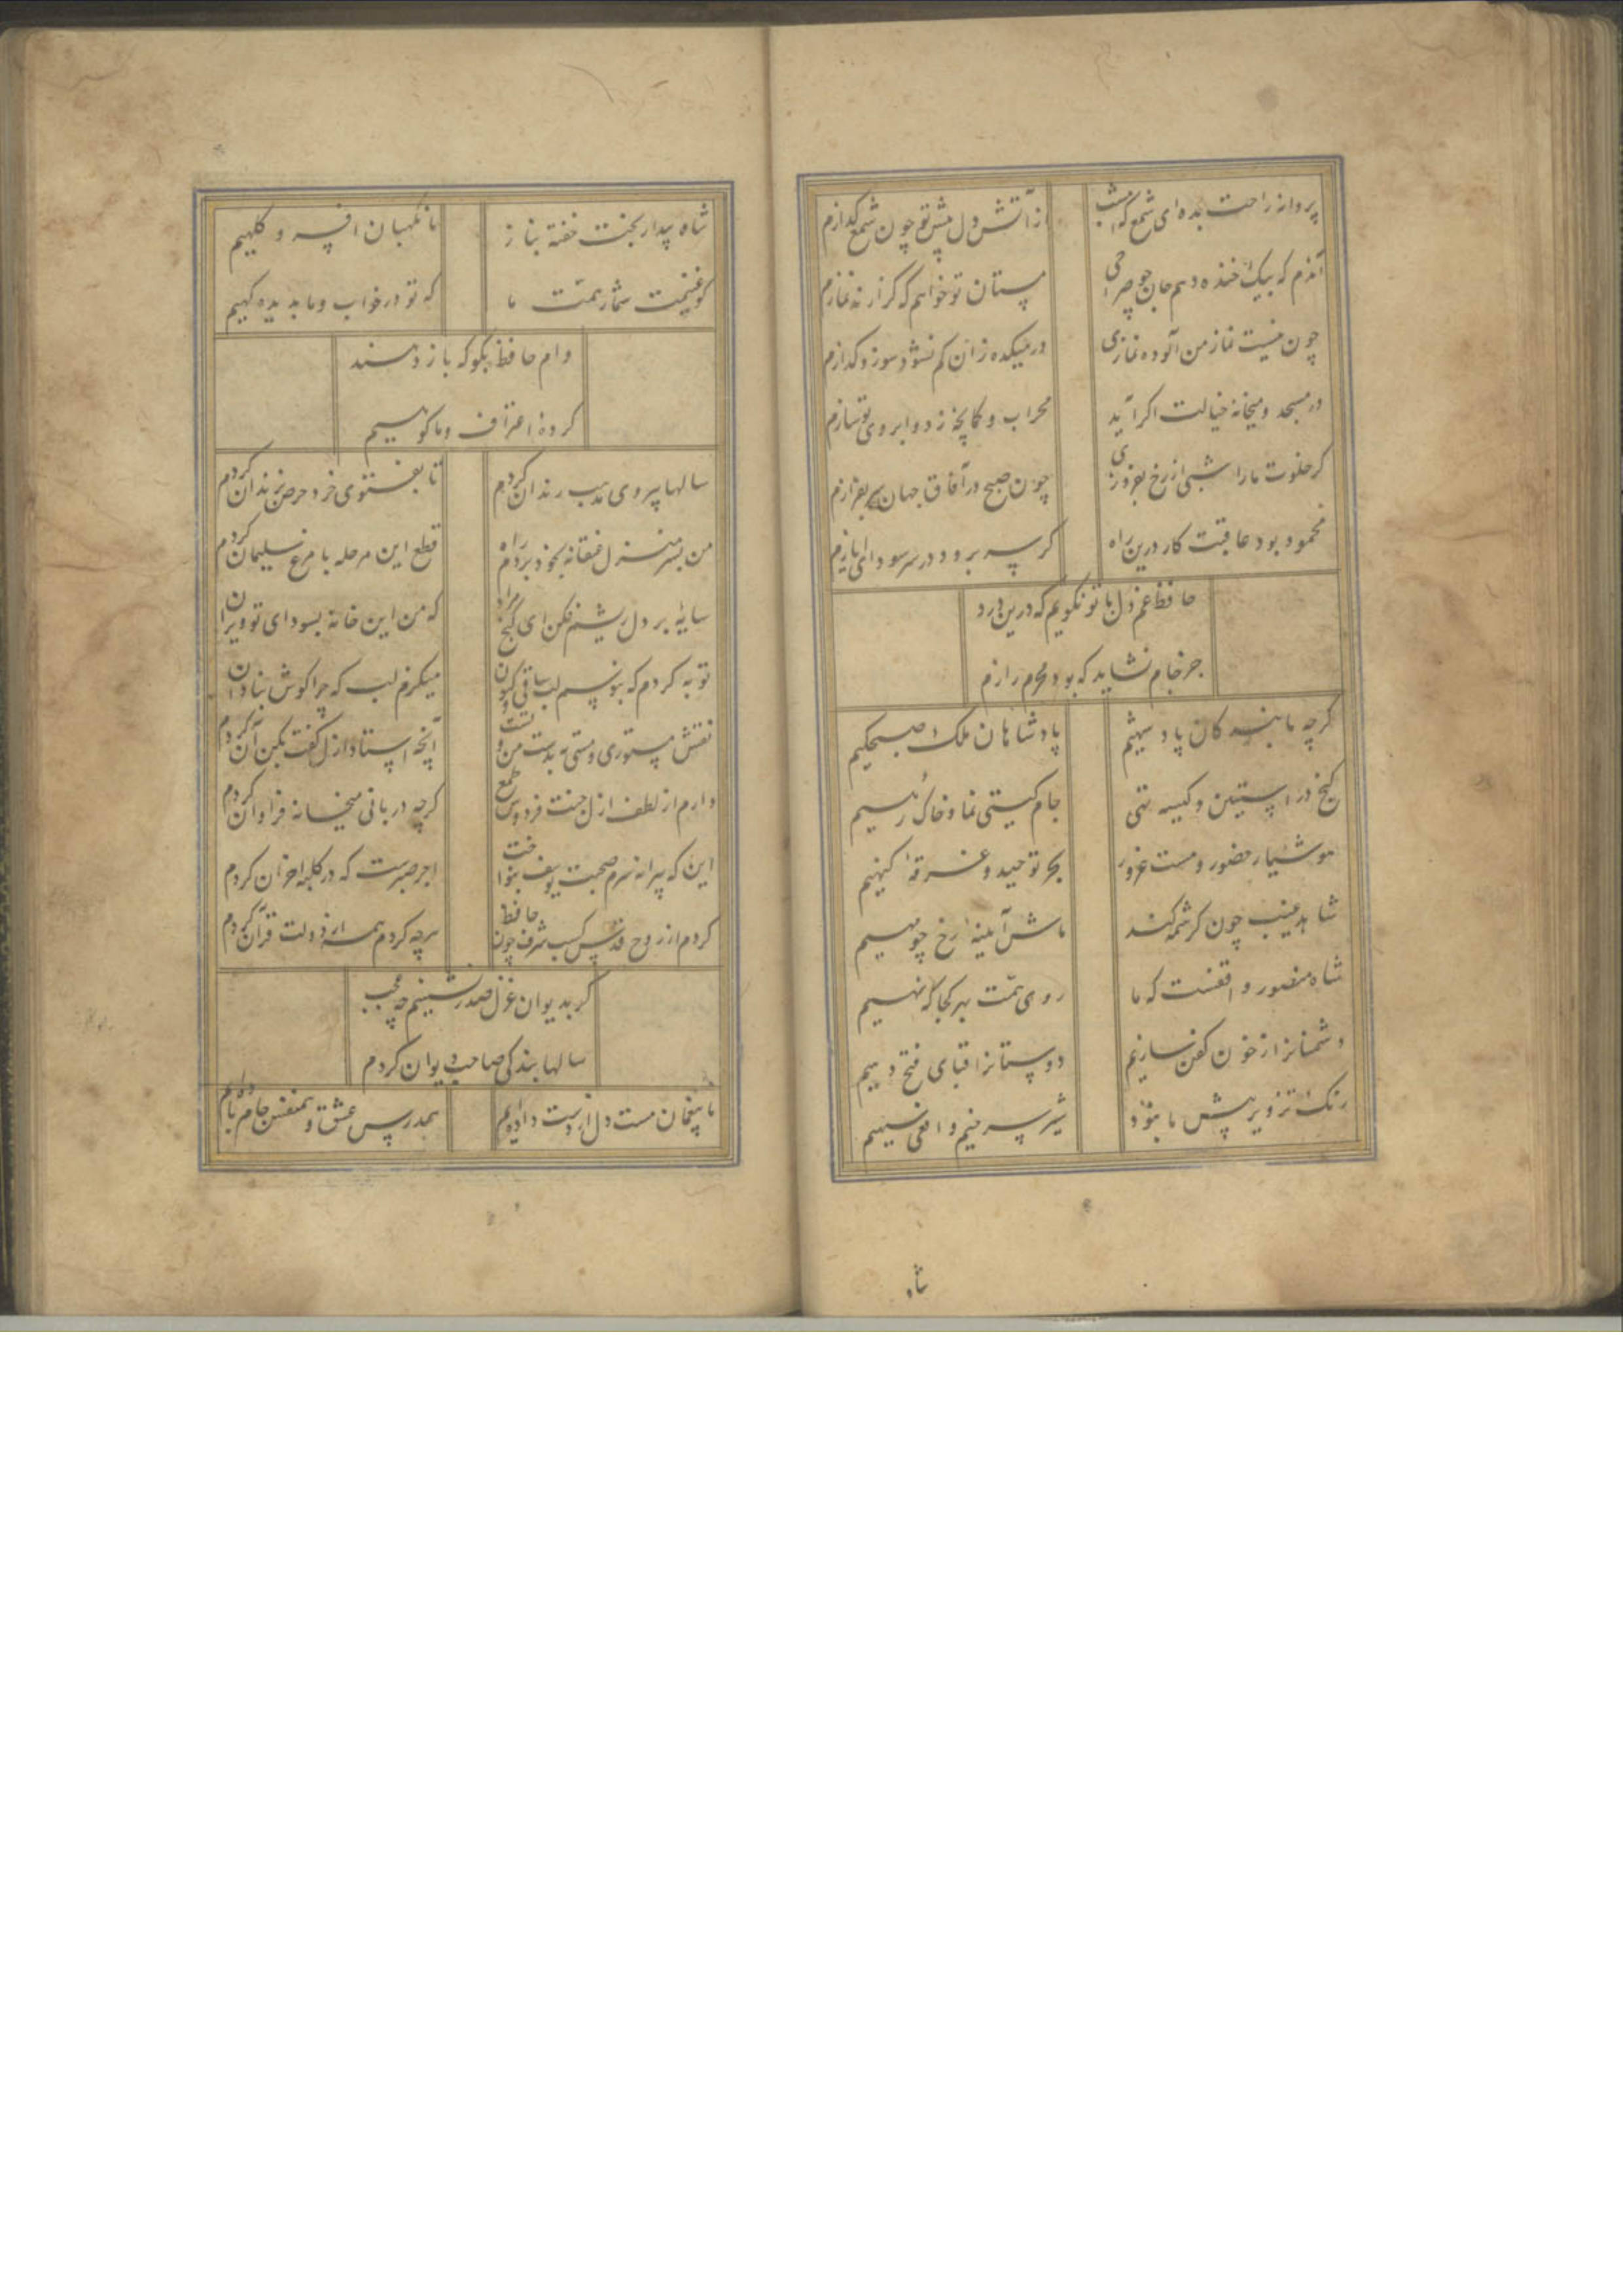 پروانه راحت بده ای شمع که امشب
از آتش دل پیش تو چون شمع گدازم
آندم که بیک خنده دهم جان چو صراحی
مستان تو خواهم که گزارند نمازم
چون نیست نماز من آلوده نمازی
در میکده زان کم نشود سوز و گدازم
در مسجد و میخانه خیالت اگر آید
محراب و کمانچه ز دو ابروی تو سازم
گر خلوت ما را شبی از رخ بفروزی
چون صبح در آفاق جهان سر بفرازم
محمود بود عاقبت کار درین راه
گر سر برود در سر سودای ایازم
حافظ غم دل با تو نگویم که درین درد
جز جام نشاید که بود محرم رازم
گرچه ما بندگان پادشهیم
پادشاهان ملک صبحگهیم
گنج در آستین و کیسه تهی
جام گیتی نما و خاک رهیم
هوشیار حضور و مست غرور
بحر توحید و غرقه گنهیم
شاهد غیب چون کرشمه کند
ماش آیینه رخ چو مهیم
شاه منصور واقفست که ما
روی همت بهر کجا که نهیم
دشمنانرا ز خون کفن سازیم
دوستانرا قبای فتح دهیم
رنگ تزویر پیش ما نبود
شیر سرخیم و افعی سیهیم
شاه
شاه بیدار بخت خفته بناز
ما نگهبان افسر و کلهیم
گو غنیمت شمار همت ما
که تو در خواب و ما بدیده گهیم
وام حافظ بگو که باز دهند
کرده اعتراف و ما گوهیم
سالها پیروی مذهب رندان کردم
تا بفتوی خرد حرص بزندان کردم
من بسر منزل عنقا نه بخود بردم راه
قطع این مرحله با مرغ سلیمان کردم
سایه بر دل ریشم فکن ای گنج مراد
که من این خانه بسودای تو ویران
توبه کردم که نبوسم لب ساقی و کنون
میگزم لب که چرا گوش بنادان
نقش مستوری و مستی نه بدست من و تست
آنچه استاد ازل گفت بکن آن کردم
دارم از لطف ازل جنت فردوس طمع
گرچه دربانی میخانه فراوان کردم
این که پیرانه سرم صحبت یوسف بنواخت
اجر صبرست که در کلبه احزان کردم
کردم از روح قدس کسب شرف چون حافظ
هرچه کردم همه از دولت قرآن کردم
گر بدیوان غزل صدر نشینم چه عجب
سالها بندگی صاحب دیوان کردم
ما بیغمان مست دل از دست داده‌ایم
همدرس عشق و همنفس جام باده‌ایم